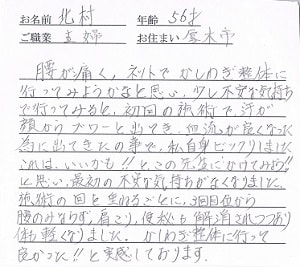 お名前 北村 年齢 56才
ご職業 主婦 お住まい 厚木市
腰が痛く、ネットでかしのぎ整体に
行ってみようかなと思い、少し不安な気持ち
で行ってみると、初回の施術で、汗が
顔からブワーと出てき、血流が良くなった
為に出てきたの事で、私自身ビックリしました
これは、いいかも!!と、この先生にかけてみよう!!
と思い、最初の不安な気持ちがなくなりました。
施術の回を重ねるごとに、3回目位から
腰のみならず、肩こり、便秘も解消されつつあり
体も軽くなりました。かしのぎ整体に行って
良かった!!と実感しております。